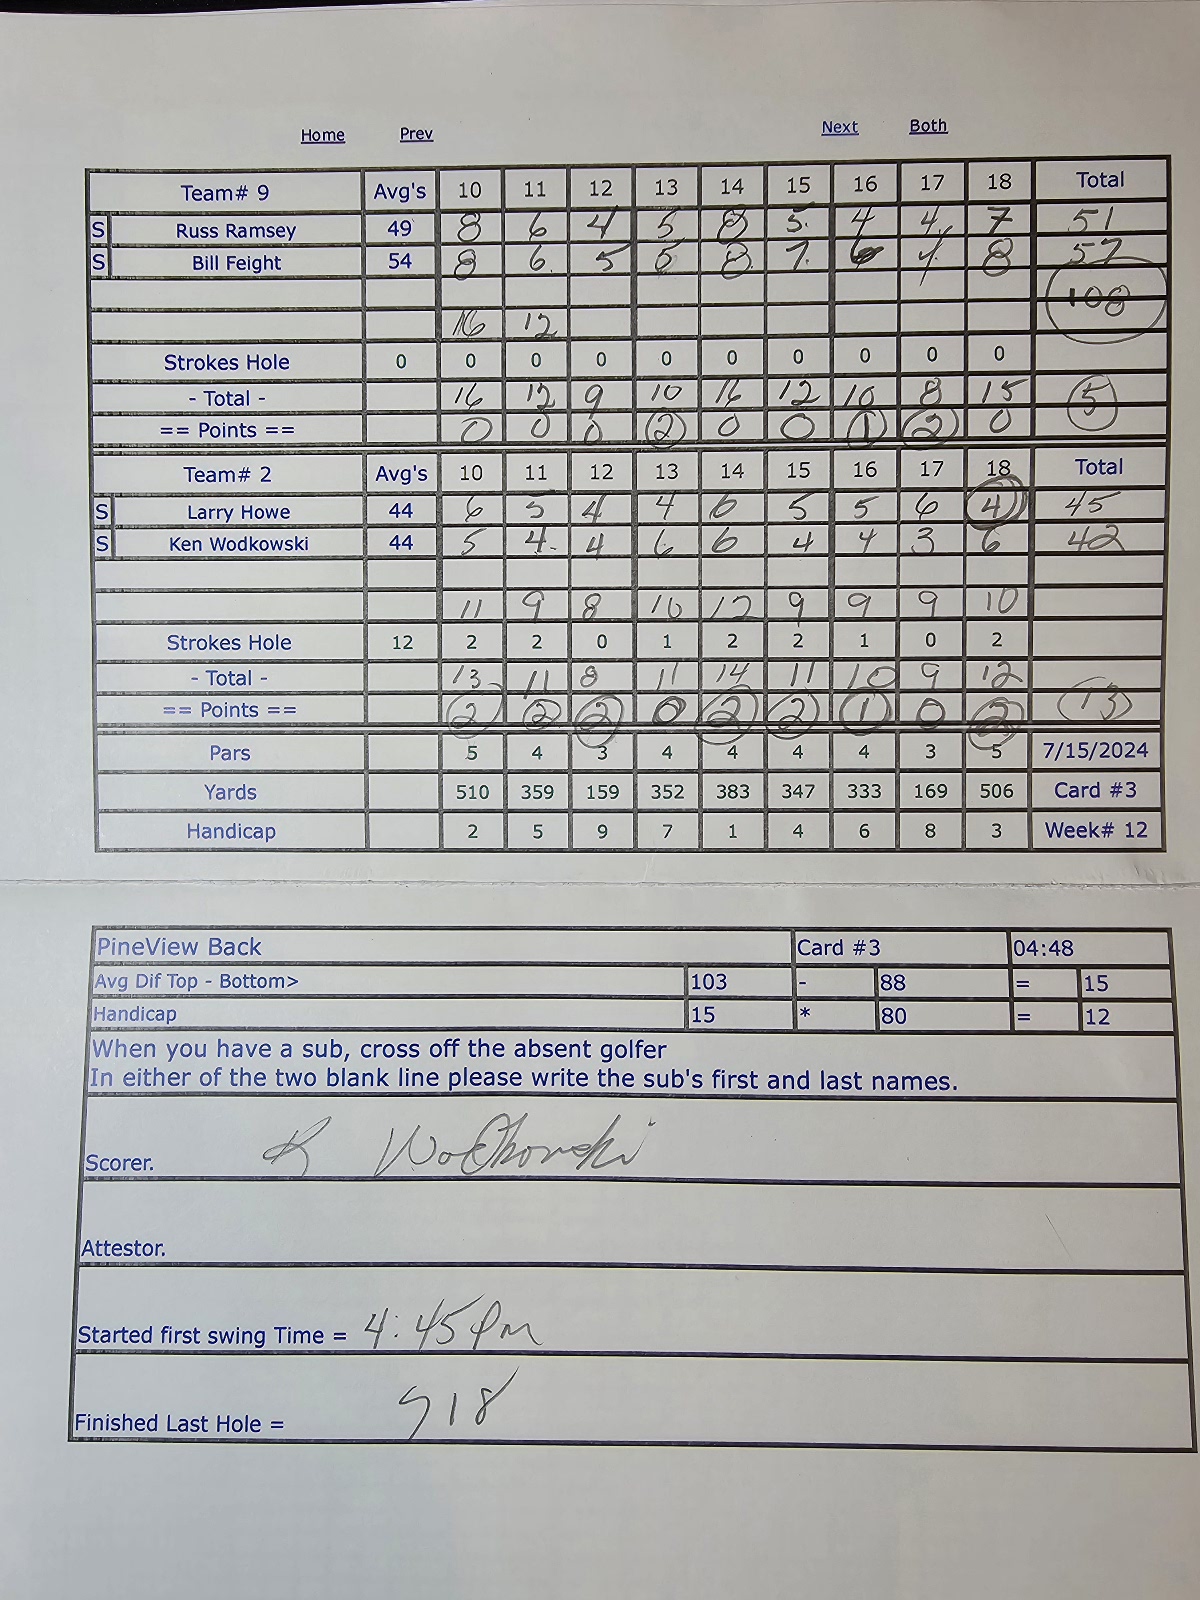 Home Prev Next Both
Team# 9 Avg's 10 11 12 13 14 15 16 17 18 Total
S Russ Ramsey 49 8 6 4 5 8 5 4 4 7 51
S Bill Feight 54 8 6 5 5 8 7 6 4 8 57
108
16 12
Strokes Hole 0 0 0 0 0 0 0 0 0 0
- Total - 16 12 9 10 16 12 10 8 15 5
== Points == 0 0 0 2 0 0 1 2 0
Team# 2 Avg's 10 11 12 13 14 15 16 17 18 Total
S Larry Howe 44 6 5 4 4 6 5 5 6 4 45
S Ken Wodkowski 44 5 4 4 6 6 4 4 3 6 42
11 9 8 10 12 9 9 9 10
Strokes Hole 12 2 2 0 1 2 2 1 0 2
- Total - 13 11 8 11 14 11 10 9 12
== Points == 2 2 2 0 2 2 1 0 2 13
Pars 5 4 3 4 4 4 4 3 5 7/15/2024
Yards 510 359 159 352 383 347 333 169 506 Card #3
Handicap 2 5 9 7 1 4 6 8 3 Week# 12
PineView Back Card #3 04:48
Avg Dif Top - Bottom> 103 - 88 = 15
Handicap 15 * 80 = 12
When you have a sub, cross off the absent golfer
In either of the two blank line please write the sub's first and last names.
Scorer. K Wodkowski
Attestor.
Started first swing Time = 4:45 pm
Finished Last Hole = 918